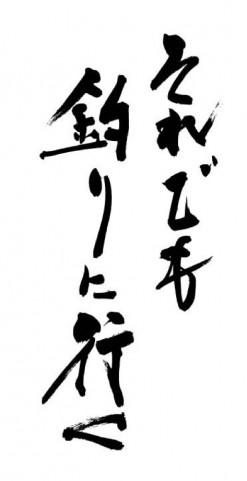 それでも
釣りに行く